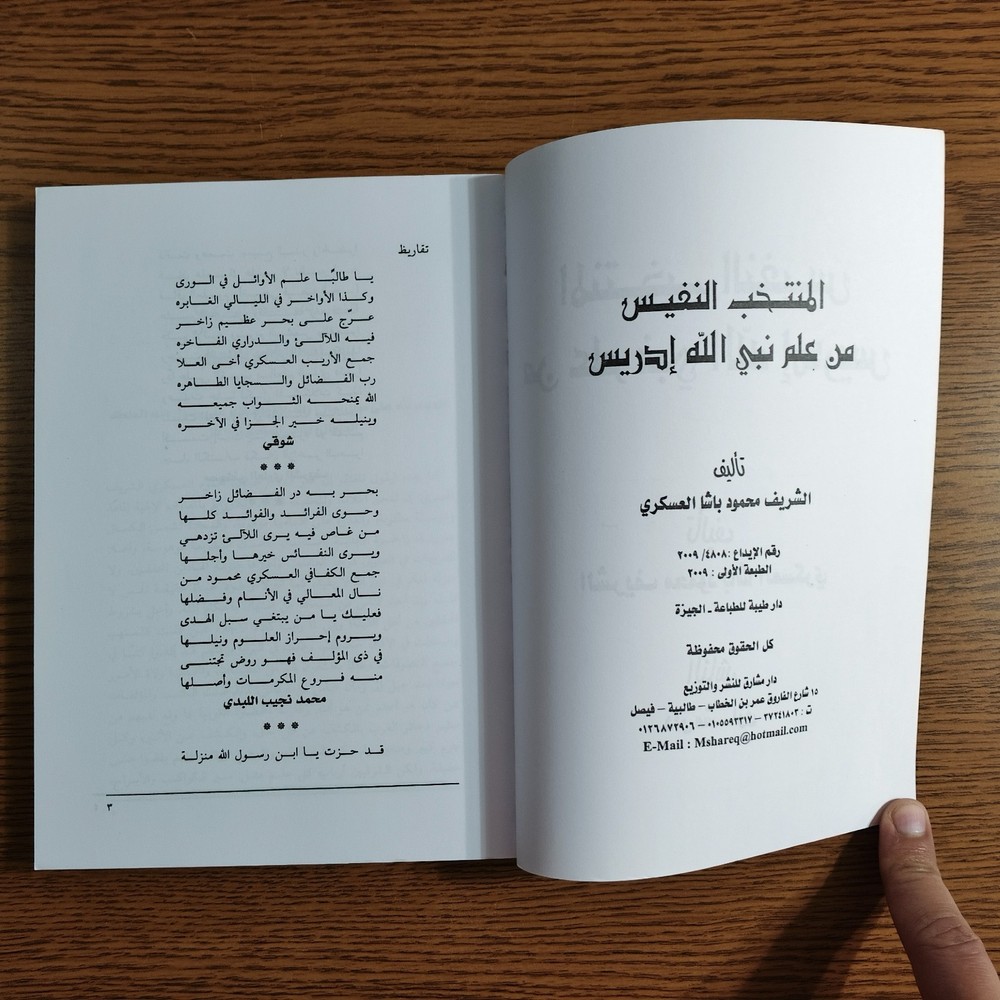 المنتخب النفيس
من علم نبي الله إدريس
تأليف
الشريف محمود باشا العسكري
رقم الإيداع : ٤٨٠٨/ ٢٠٠٩
الطبعة الأولى : ٢٠٠٩
دار طيبة للطباعة ـ الجيزة
كل الحقوق محفوظة
دار مشارق للنشر والتوزيع
١٥ شارع الفاروق عمر بن الخطاب – طالبية – فيصل
ت : ٢٧٢٤١٨٠٣ – ٠١٠٥٥٩٢٣١٧ – ٠١٢٦٨٧٢٩٠٦
E-Mail : Mshareq@hotmail.com
تقاريظ
يا طالبًا علم الأوائل في الورى
وكذا الأواخر في الليالي الغابره
عرّج على بحر عظيم زاخر
فيه اللآلئ والدراري الفاخره
جمع الأريب العسكري أخى العلا
رب الفضائل والسجايا الطاهره
الله يمنحه الثواب جميعه
وينيله خير الجزا في الآخره
شوقي
***
بحر به در الفضائل زاخر
وحوى الفرائد والفوائد كلها
من غاص فيه يرى اللآلئ تزدهي
ويرى النفائس خيرها وأجلها
جمع الكفافي العسكري محمود من
نال المعالي في الأنام وفضلها
فعليك يا من يبتغي سبل الهدى
ويروم إحراز العلوم ونيلها
في ذى المؤلف فهو روض تجتنى
منه فروع المكرمات وأصلها
محمد نجيب اللبدي
***
قد حزت يا ابن رسول الله منزلة
٣